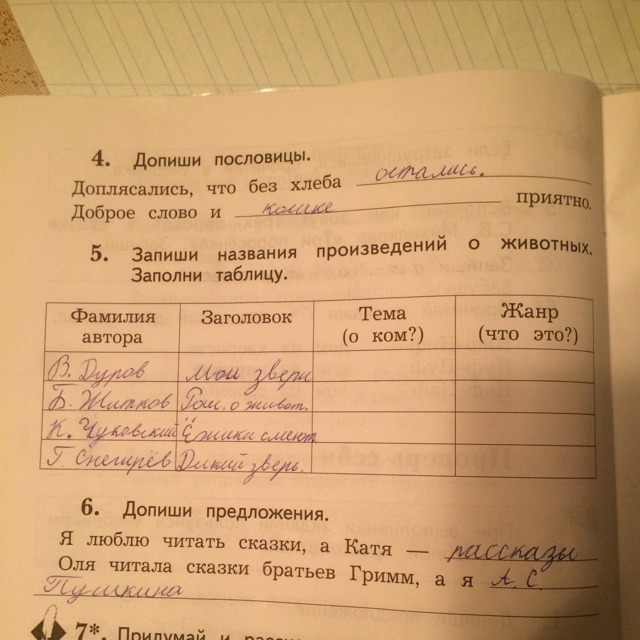 4. Допиши пословицы.
Доплясались, что без хлеба остались.
Доброе слово и кошке приятно.
5. Запиши названия произведений о животных.
Заполни таблицу.
Фамилия автора Заголовок Тема (о ком?) Жанр (что это?)
В. Дуров Мои звери
Б. Житков о живот.
К. Чуковский Ёжики смеют
Г. Снегирёв Дикий зверь.
6. Допиши предложения.
Я люблю читать сказки, а Катя — рассказы
Оля читала сказки братьев Гримм, а я А. С.
Пушкина
7*. Придумай и